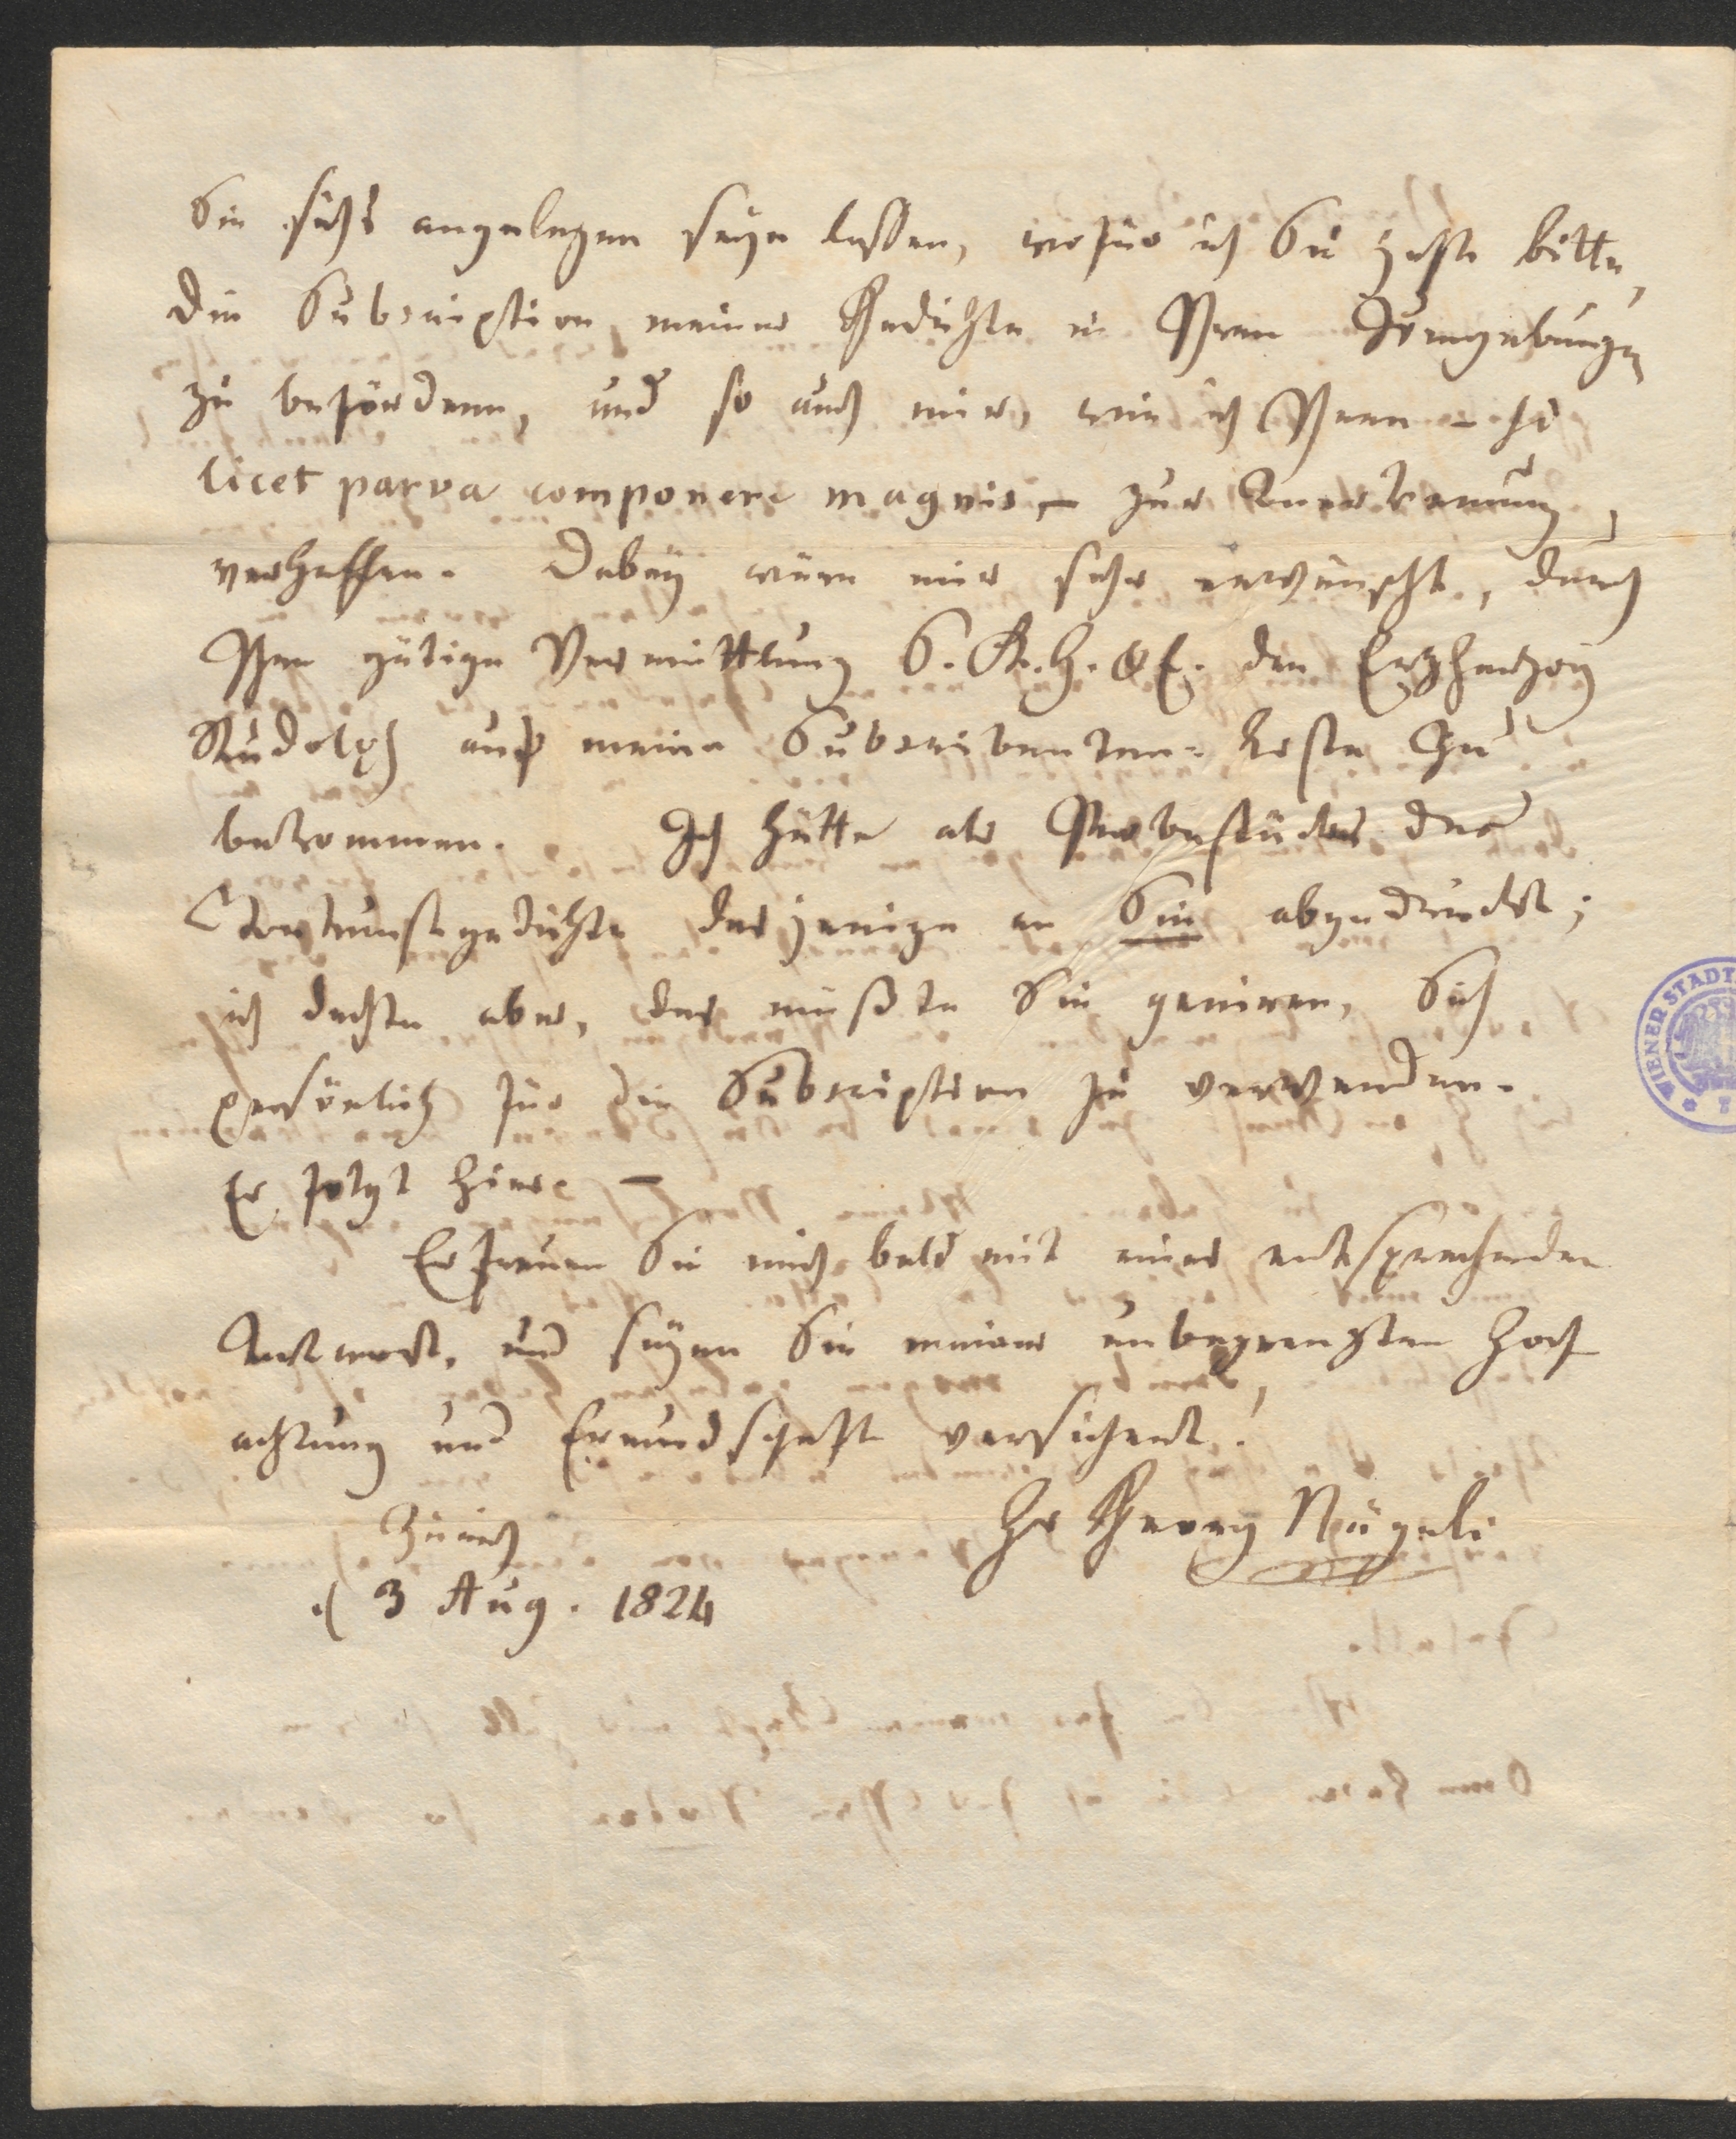 Sie sichs angelegen seyn lassen, wofür ich Sie hofte bitte,
die Subscription meiner Gedichte in Ihren Umgebungen
zu befördern, und so auch mir, wie ich Ihnen – si
licet parva componere magnis – zur Anerkennung
verhelfen. Dabey wäre mir sehr erwünscht, durch
Ihre gütige Vermittlung S. K. H. & E. den Erzherzog
Rudolph auf meine Subscribenten-Liste zu
bekommen. Ich hätte als Probestücke der
Tonkunstgedichte dasjenige an Sie abgedruckt;
ich dachte aber, das müßte Sie geniren, Sich
persönlich für die Subscription zu verwenden.
Er folgt hier –
Erfreuen Sie mich bald mit einer entsprechenden
Antwort, und seyen Sie meiner unbegrenzten Hoch
achtung und Freundschaft versichert!
Hs Georg Nägeli
Zürich
d 3 Aug. 1824
WIENER STADT